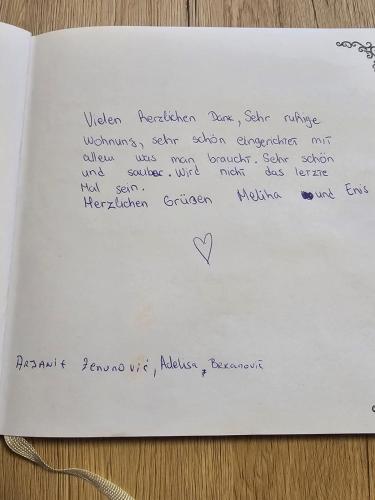 Vielen herzlichen Dank, Sehr ruhige
Wohnung, sehr schön eingerichtet mit
allem was man braucht. Sehr schön
und sauber. Wird nicht das letzte
Mal sein.
Herzlichen Grüßen Meliha und Enis
Arjanit Zenunović, Adelisa, Bexanović